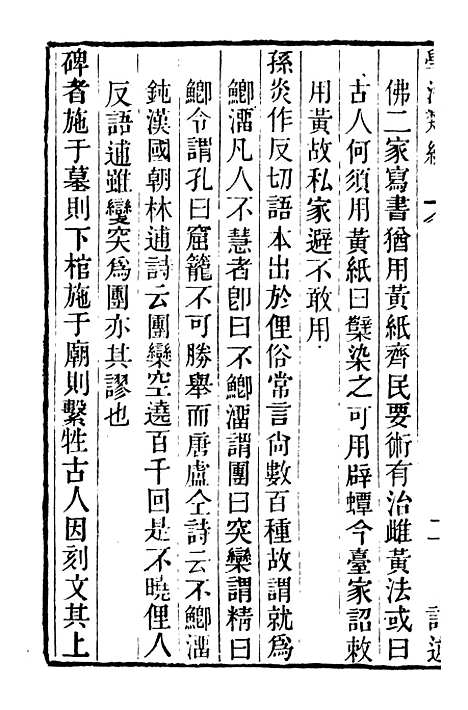 佛二家寫書猶用黃紙齊民要術有治雌黃法或曰
古人何須用黃紙曰蘗染之可用辟蟫今臺家詔敕
用黃故私家避不敢用
孫炎作反切語本出於俚俗常言尙數百種故謂就爲
鯽溜凡人不慧者卽曰不鯽溜謂團曰突欒謂精曰
鯽令謂孔曰窟籠不可勝舉而唐盧仝詩云不鯽溜
鈍漢國朝林逋詩云團欒空遶百千回是不曉俚人
反語逋雖變突爲團亦其謬也
碑者施于墓則下棺施于廟則繫牲古人因刻文其上